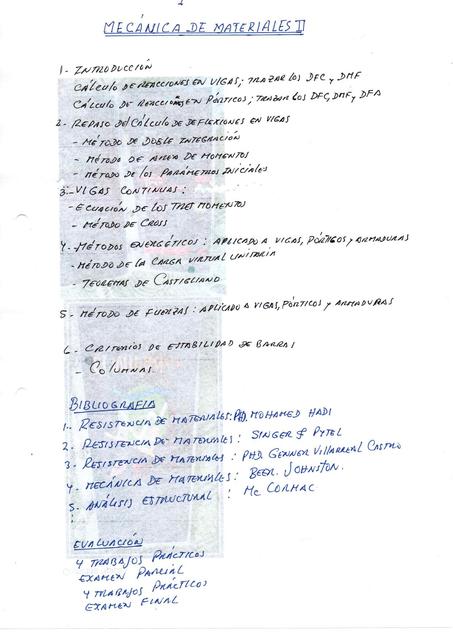 MECÁNICA DE MATERIALES II
1- INTRODUCCIÓN
CÁLCULO DE REACCIONES EN VIGAS; TRAZAR LOS DFC y DMF
CÁLCULO DE REACCIONES EN PÓRTICOS; TRAZAR LOS DFC, DMF y DFA
2- REPASO DEL CÁLCULO DE DEFLEXIONES EN VIGAS
- MÉTODO DE DOBLE INTEGRACIÓN
- MÉTODO DE AREA DE MOMENTOS
- MÉTODO DE LOS PARÁMETROS INICIALES
3- VIGAS CONTINUAS:
- ECUACIÓN DE LOS TRES MOMENTOS
- MÉTODO DE CROSS
4- MÉTODOS ENERGÉTICOS: APLICADO A VIGAS, PÓRTICOS y ARMADURAS
- MÉTODO DE LA CARGA VIRTUAL UNITARIA
- TEOREMAS DE CASTIGLIANO
5- MÉTODO DE FUERZAS: APLICADO A VIGAS, PÓRTICOS y ARMADURAS
6- CRITERIOS DE ESTABILIDAD DE BARRAS
- COLUMNAS
BIBLIOGRAFIA
1- RESISTENCIA DE MATERIALES: PhD. MOHAMED HADI
2. RESISTENCIA DE MATERIALES: SINGER & PYTEL
3- RESISTENCIA DE MATERIALES: PHD. GENNER VILLARREAL CASTRO
4- MECÁNICA DE MATERIALES: BEER. JOHNSTON.
5- ANÁLISIS ESTRUCTURAL : Mc CORMAC
EVALUACIÓN
4 TRABAJOS PRÁCTICOS
EXAMEN PARCIAL
4 TRABAJOS PRÁCTICOS
EXAMEN FINAL